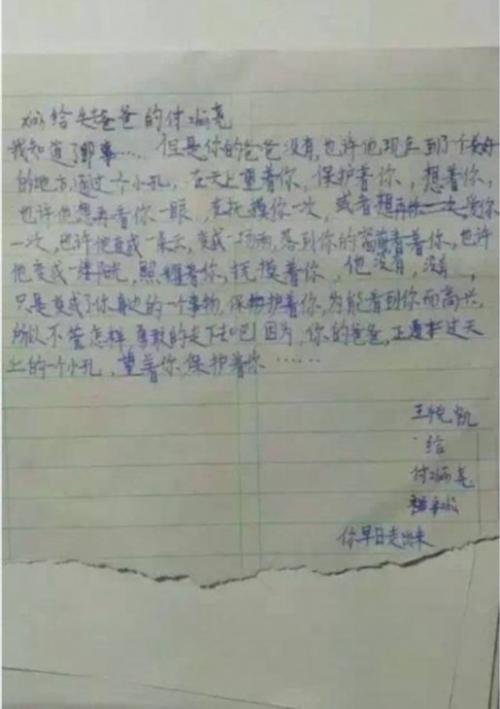 xiě给失去爸爸的付瀚亮
我知道了那事……但是你的爸爸没有,也许他,现在到了个美好
的地方,透过一个小孔,在天上望着你,保护着你,想着你,
也许他想再看你一眼,在抚摸你一次,或者想再爱你
一次,也许他变成一朵云,变成一场雨,落到你的窗前看着你,也许
他变成一缕阳光,照耀着你,抚摸着你,他没有,没有,
只是变成了你身边的一个事物,保护着你,为能看到你而高兴,
所以不管怎样,勇敢的走下去吧因为,你的爸爸,正透过天
上的一个小孔,望着你,保护着你……
王悦凯
给
付瀚亮
你早日走出来